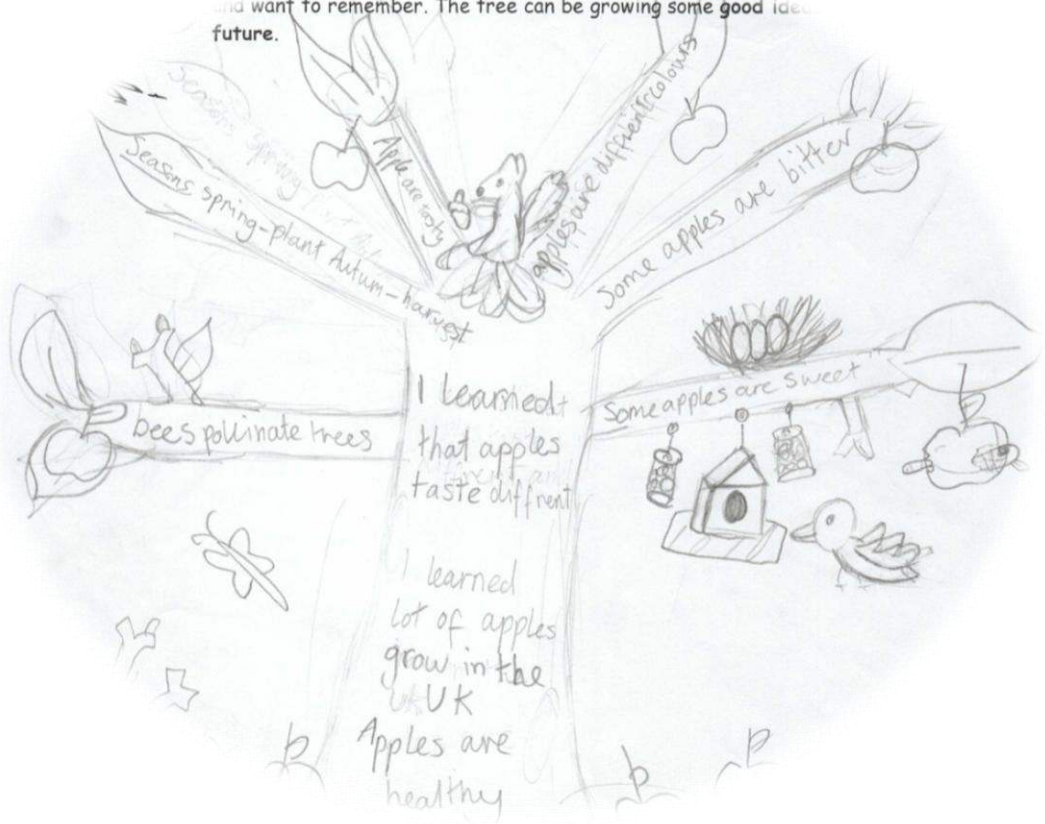 want to remember. The tree can be growing some good
future.
Seasons spring-plant Autum-harvest
Apple are tasty
apples are diffrent colours
Some apples are bitter
bees pollinate trees
Some apples are sweet
I learned
that apples
taste diffrent
I learned
lot of apples
grow in the
UK
Apples are
healthy